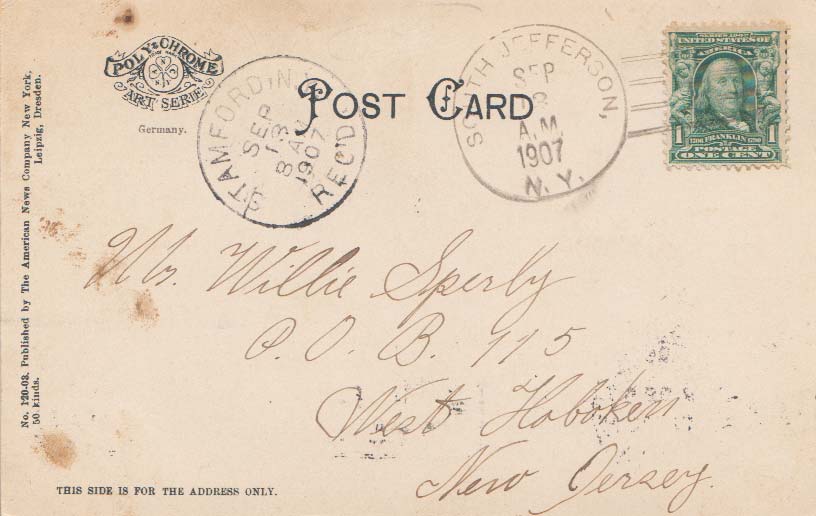 POLY-CHROME
ART SERIE
Germany.
POST CARD
STAMFORD, N.Y.
SEP
13
8 AM
1907
REC'D
SOUTH JEFFERSON,
SEP
A.M.
1907
N.Y.
SERIES 1902
UNITED STATES OF
AMERICA
1 FRANKLIN 1
POSTAGE
ONE CENT
No. 120-03. Published by The American News Company New York,
Leipzig, Dresden.
50 kinds.
Mr. Willie Sperly
P. O. B. 115
West Hoboken
New Jersey.
THIS SIDE IS FOR THE ADDRESS ONLY.